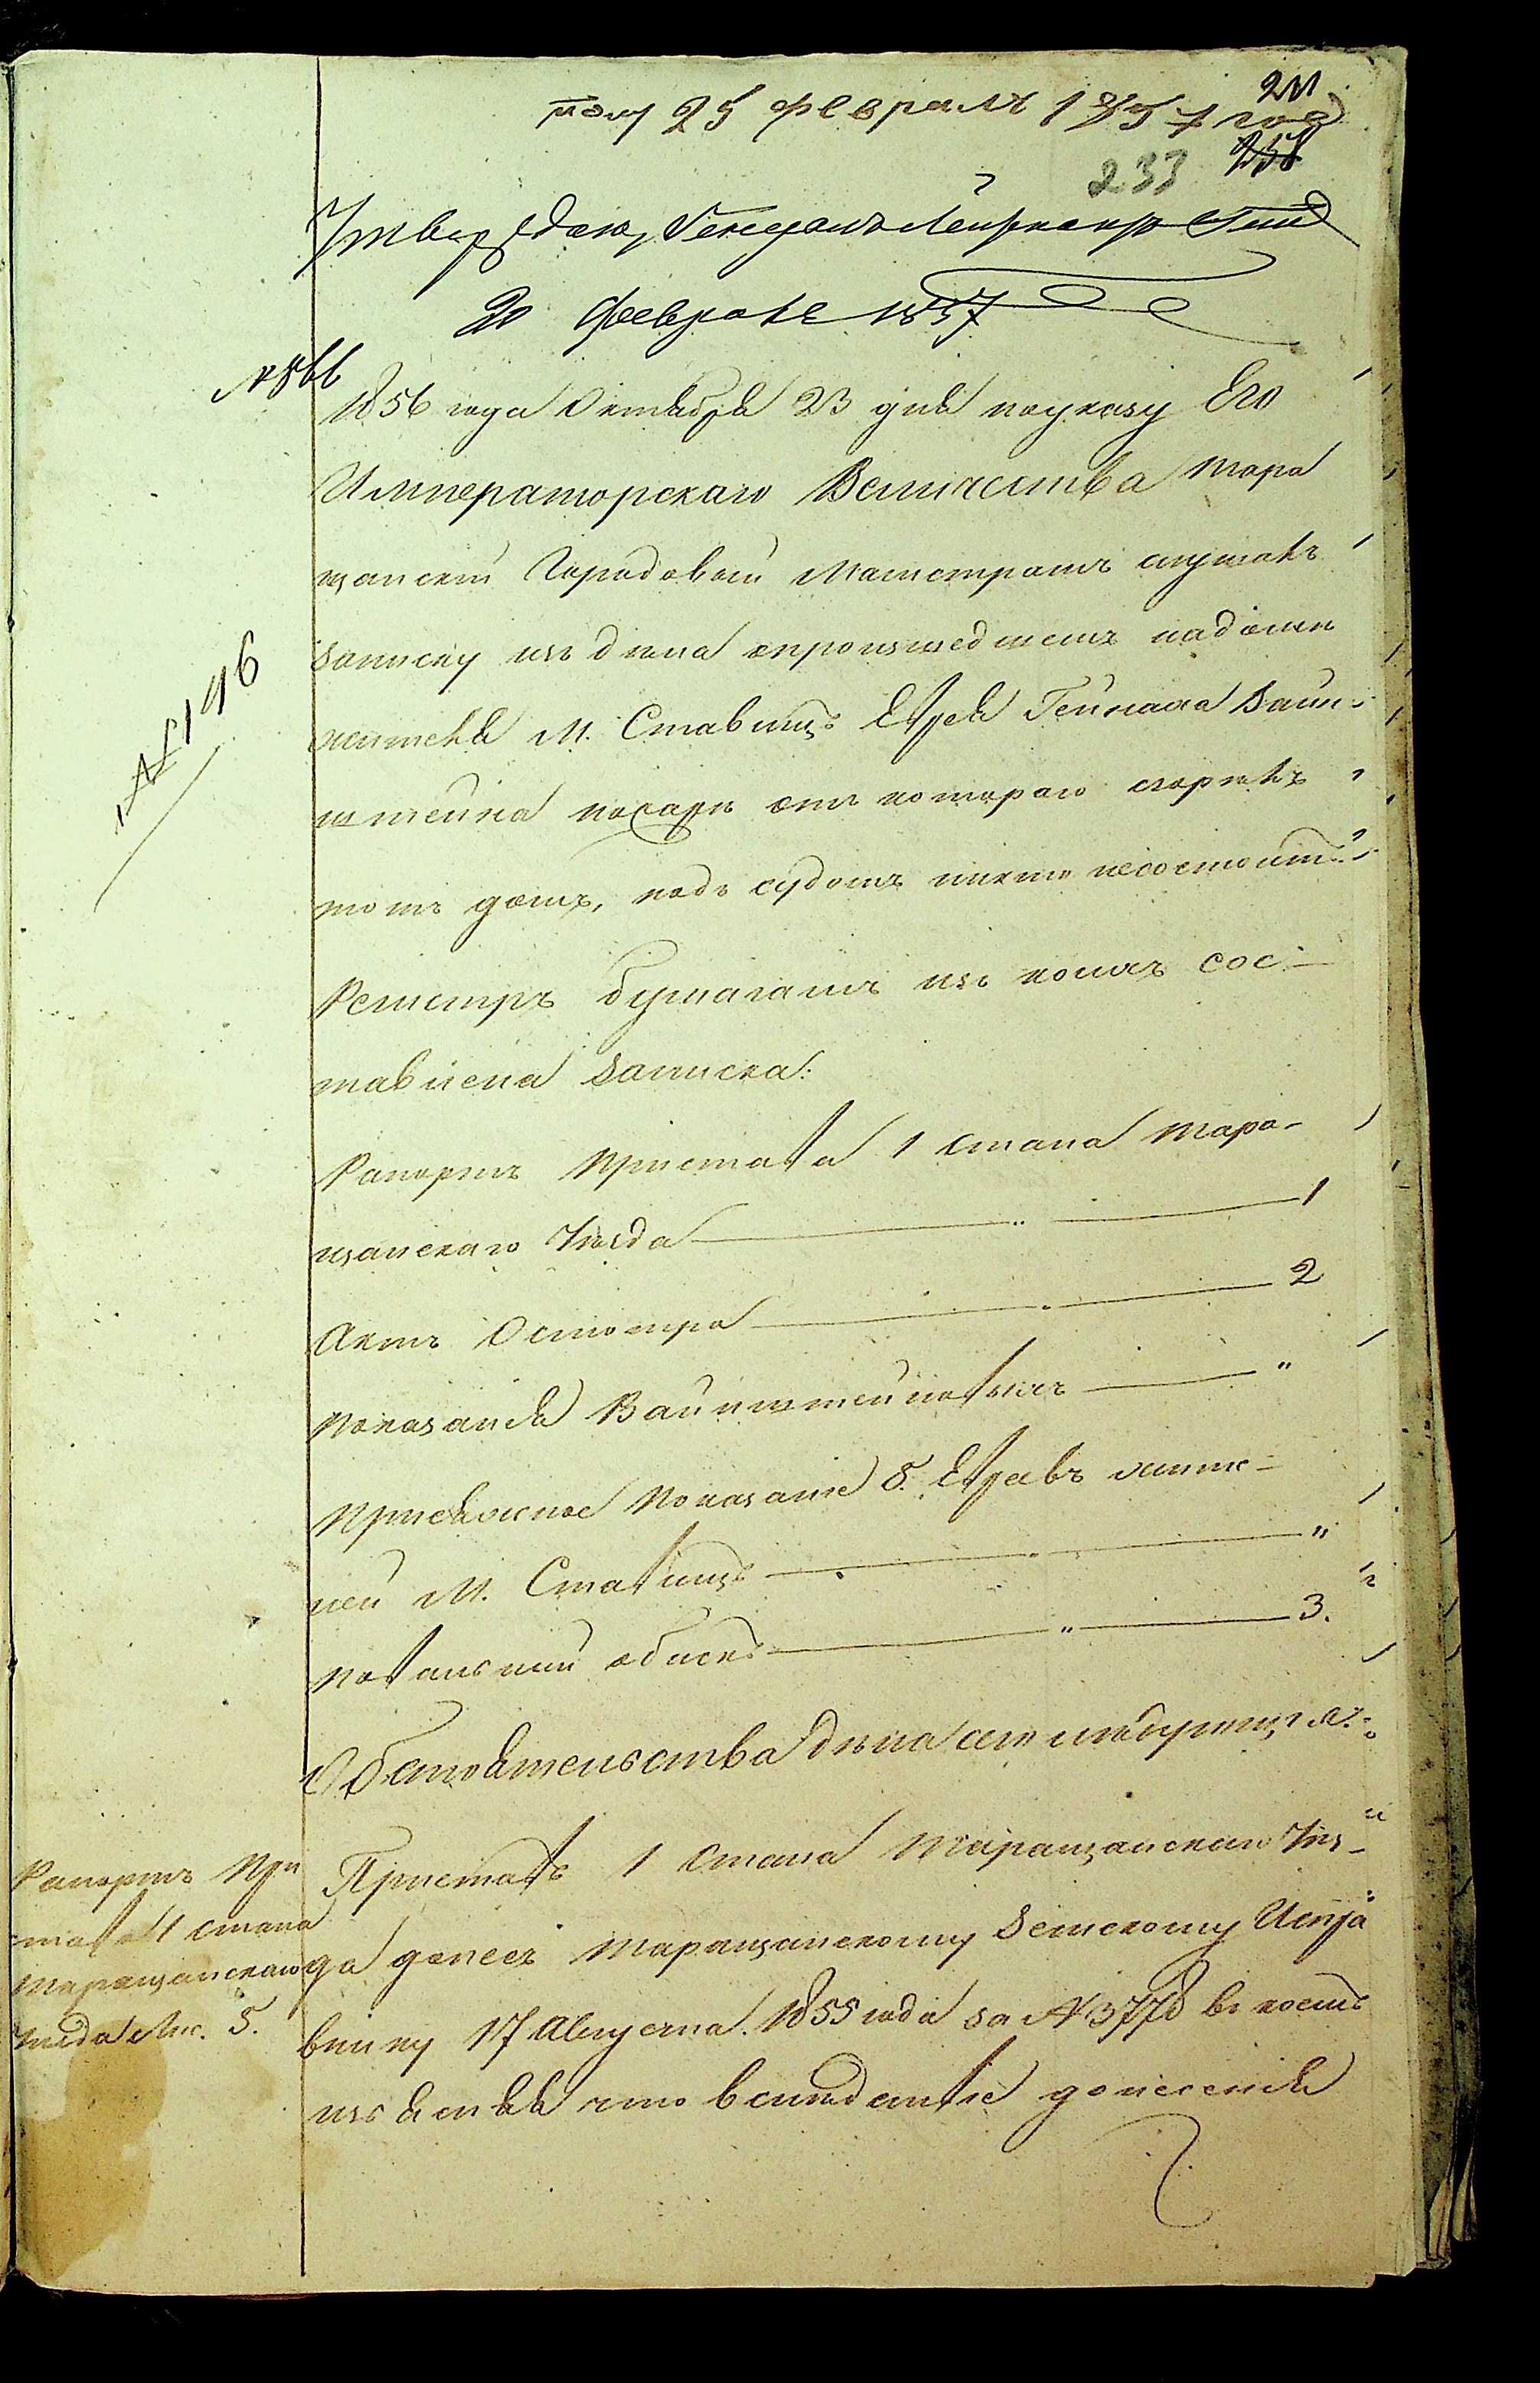 211
пол 25 февраля 1857 года
258
233
Утверждаю, Генералъ Лейтенантъ
20 Февраля 1857
№ 566
1856 года Октября 23 дня по указу Его
Императорскаго Величества Тара
щанскій Городовой Магистратъ слушалъ
записку изъ дела о произшедшемъ въ доме
№ 1496
жителя М. Ставищъ Еврея Гейнаха Вайн-
штейна пожаре отъ котораго сгорелъ
тотъ домъ, подъ судомъ никто не состоитъ.
Регистръ бумагамъ изъ коихъ сос-
тавлена записка:
Рапортъ Пристава 1 стана Тара-
щанскаго Уезда — „ — 1
Актъ Осмотра — „ — 2
Показанія Вайнштейновыхъ — „
Присяжное показаніе 8. Евреевъ жите-
лей М. Ставищъ — „ — „
Повальный обыскъ — „ — 3.
Обстоятельства дела сего следующія:
Рапортъ При
става 1 стана
Таращанскаго
Уезда Лис. 5.
Приставъ 1 Стана Таращанскаго Уез-
да донесъ Таращанскому Земскому Испра
внику 17 Августа 1855 года за № 3778 въ коемъ
изъясняя что вследствіе донесенія